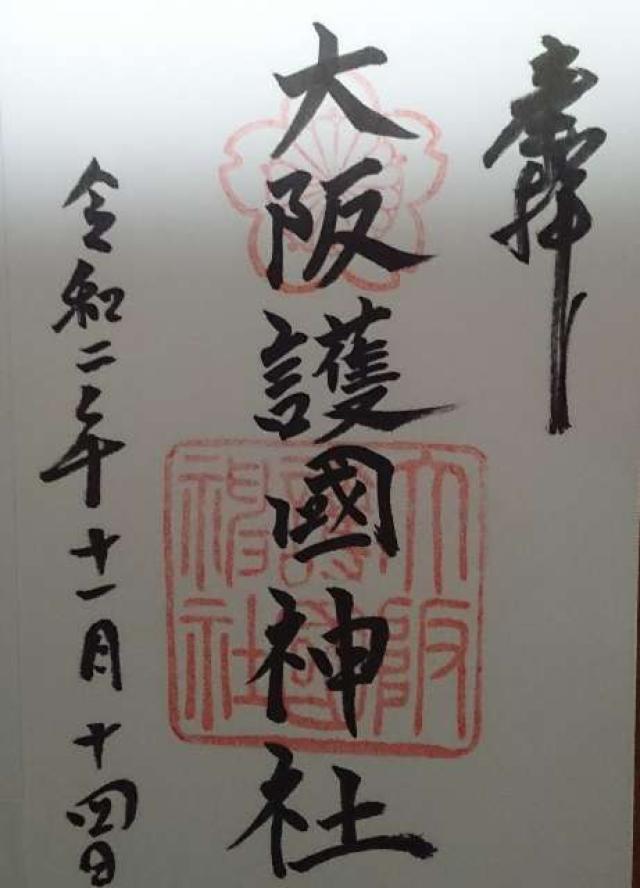 奉拝
大阪護國神社
令和二年十一月十四日
大阪護國神社